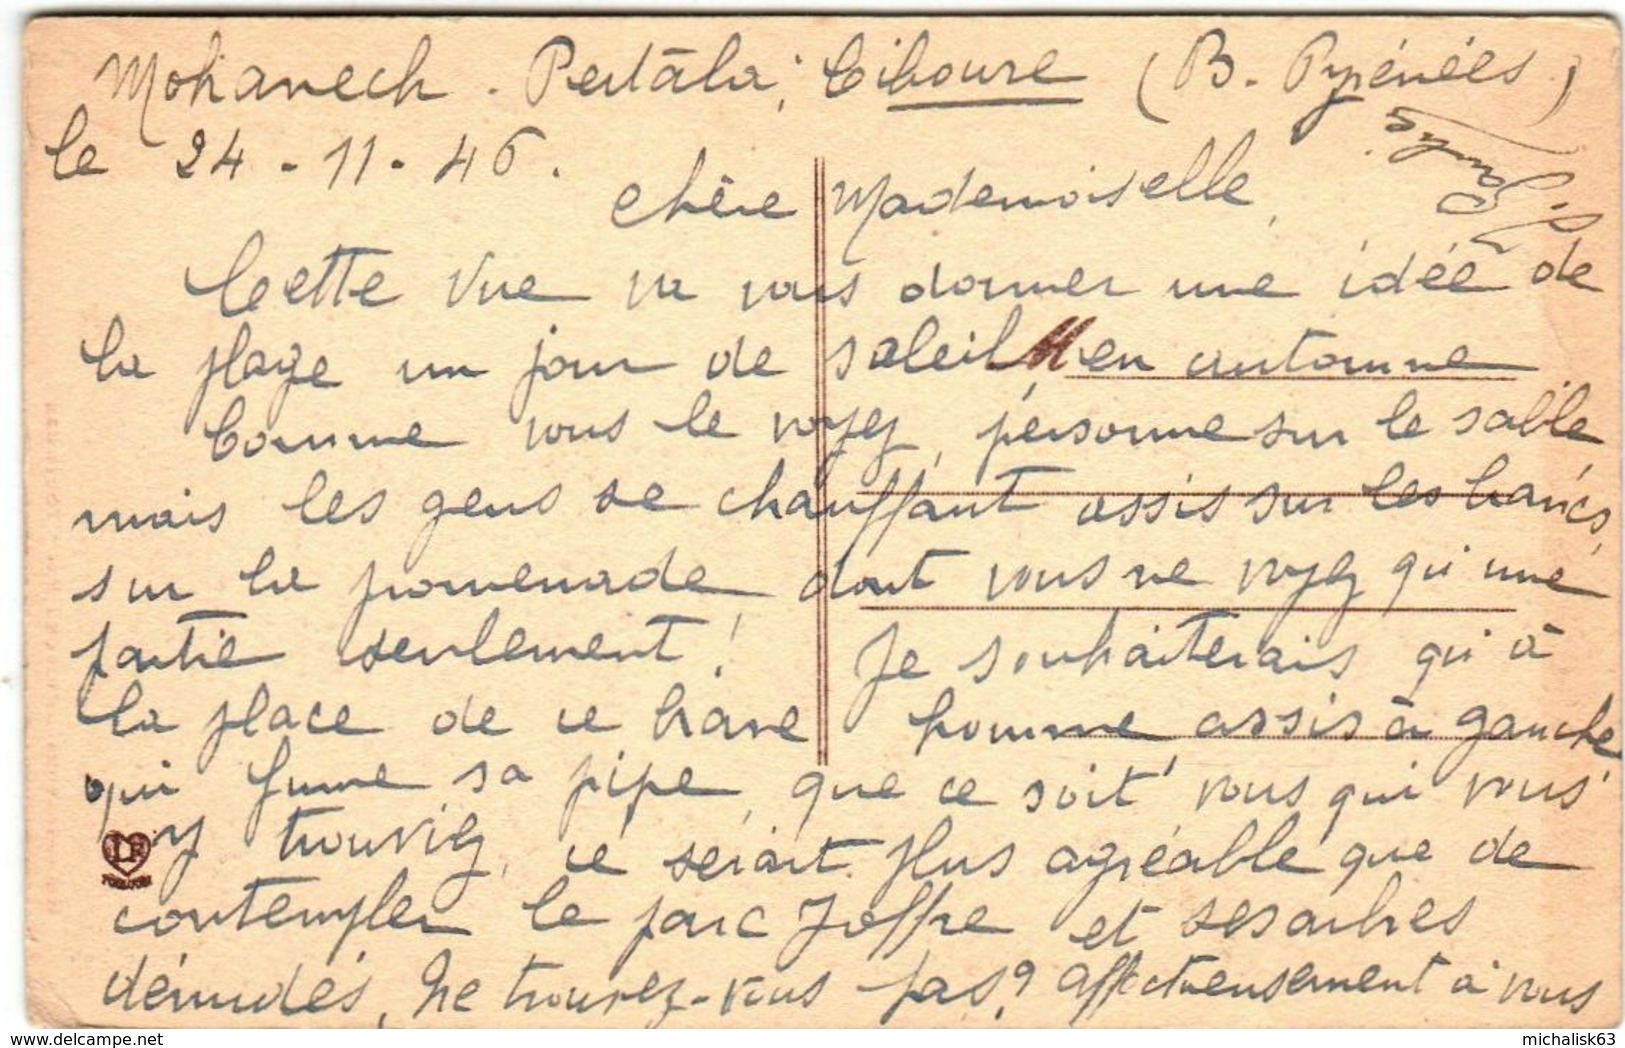 Mohanech - Pertàla, Ciboure (B. Pyrénées)
le 24-11-46.
Chère Mademoiselle,
Cette vue va vous donner une idée de
la plage un jour de soleil en automne
Comme vous le voyez, personne sur le sable
mais les gens se chauffant assis sur les bancs,
sur la promenade dont vous ne voyez qu'une
partie seulement! Je souhaiterais qu'à
la place de ce brave homme assis à gauche
qui fume sa pipe, que ce soit vous qui vous
y trouviez, ce serait plus agréable que de
contempler le parc Joffre et ses arbres
dénudés, ne trouvez-vous pas? Affectueusement à vous
LF
TOULOUSE
michalisk63